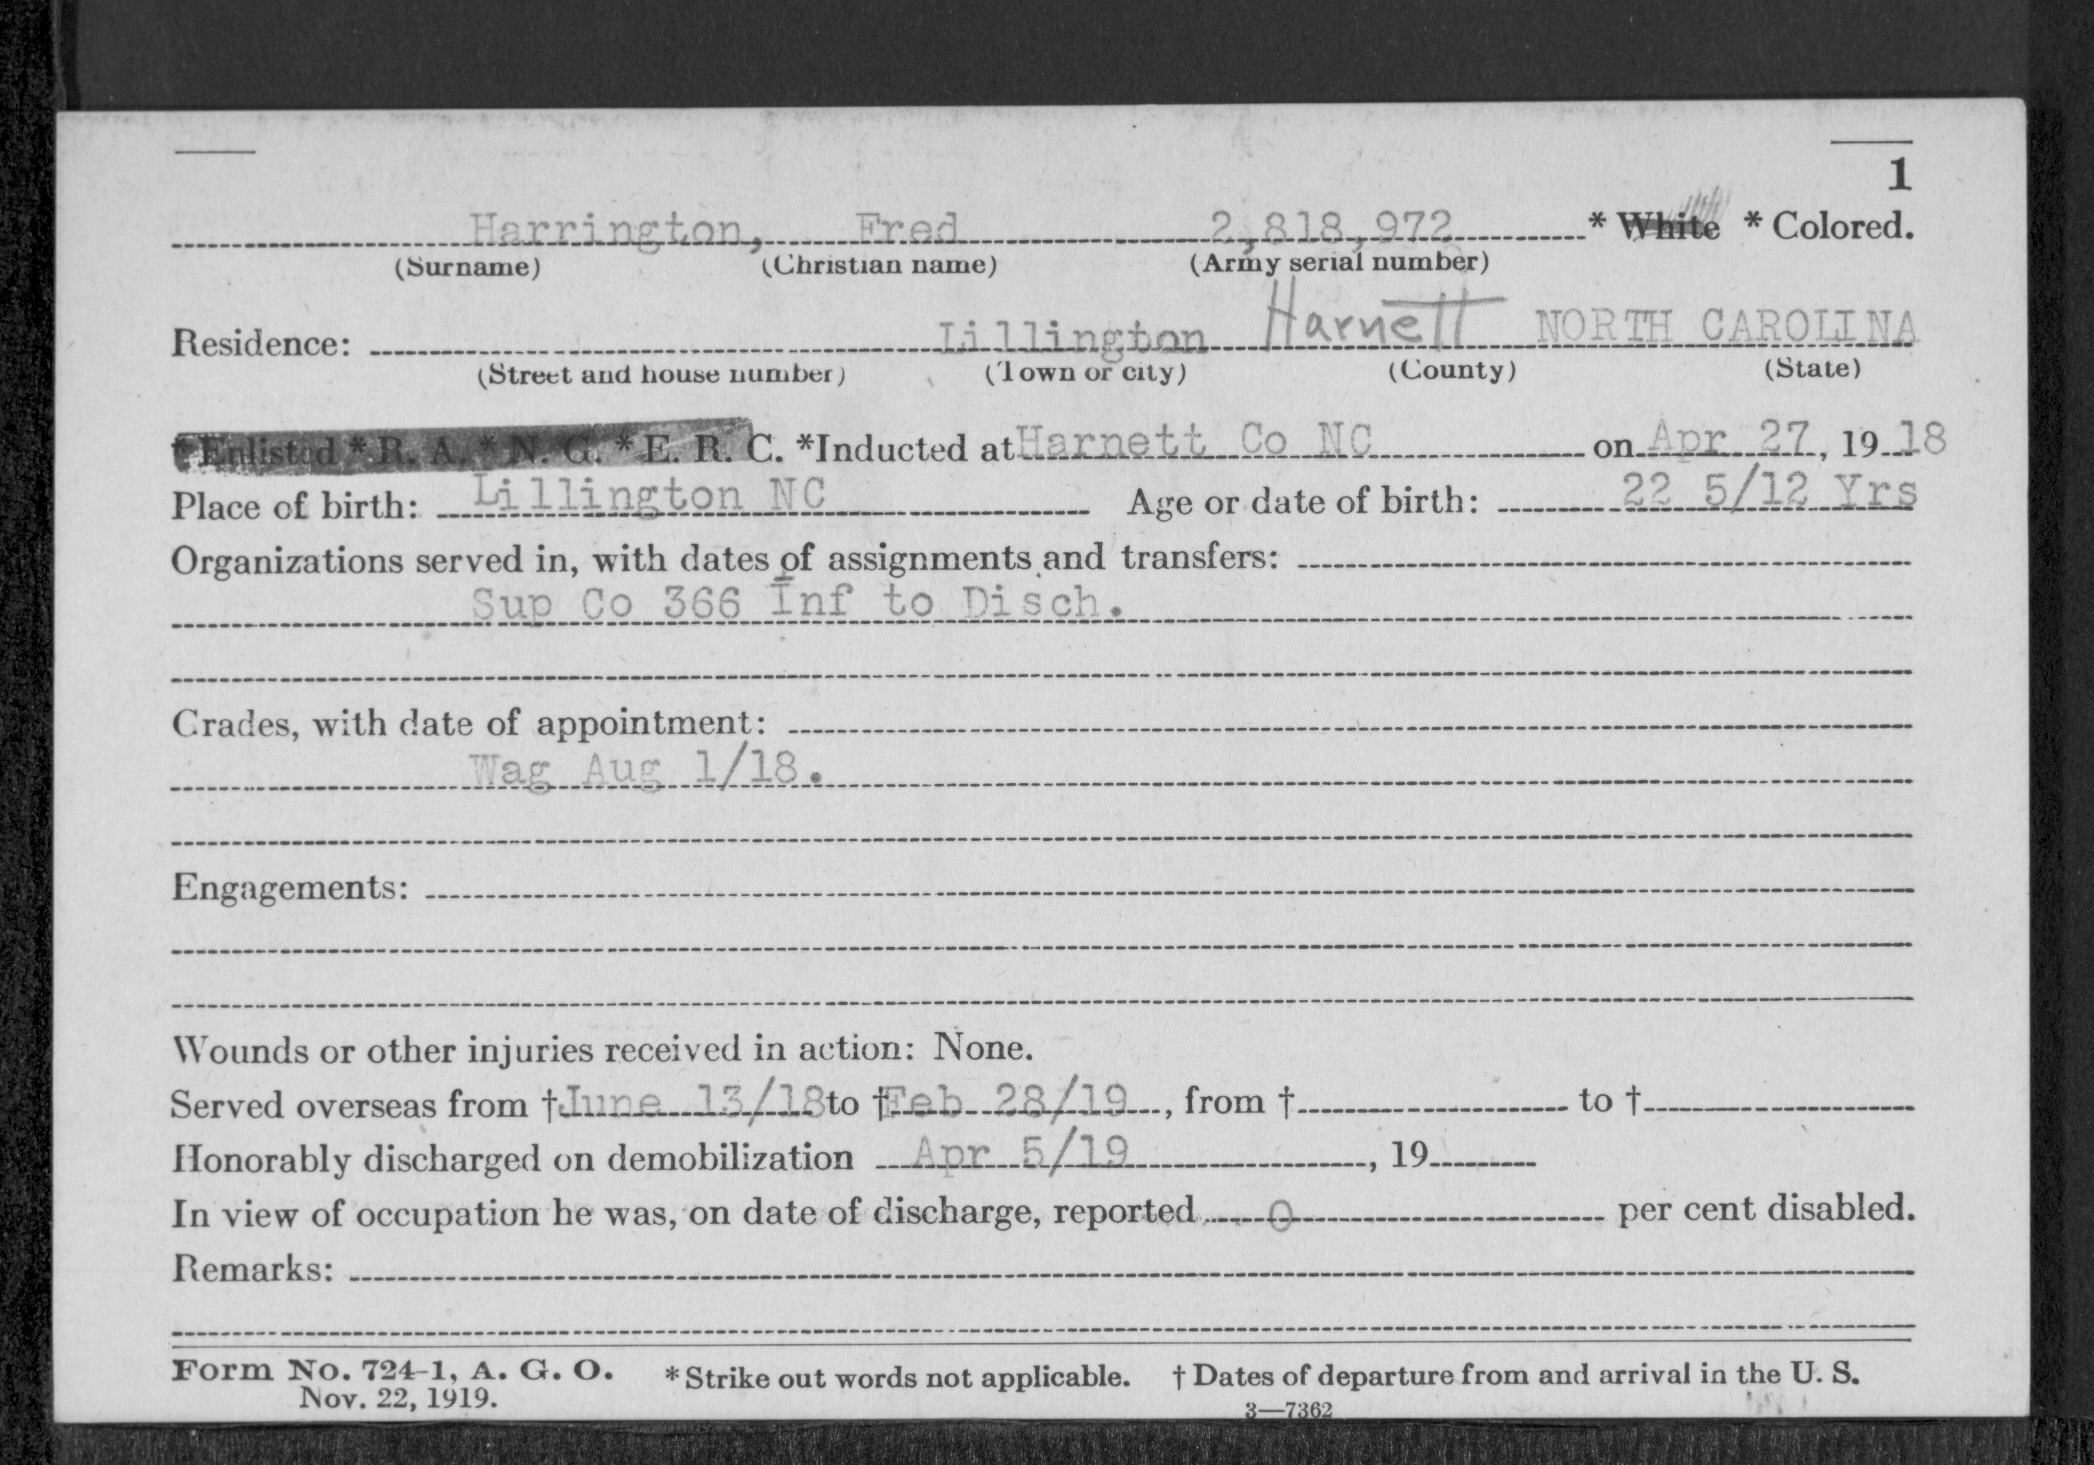 1
Harrington, Fred 2,818,972 * White * Colored.
(Surname) (Christian name) (Army serial number)
Residence: Lillington Harnett NORTH CAROLINA
(Street and house number) (Town or city) (County) (State)
* Enlisted * R. A. * N. G. * E. R. C. *Inducted at Harnett Co NC on Apr 27, 19 18
Place of birth: Lillington NC Age or date of birth: 22 5/12 Yrs
Organizations served in, with dates of assignments and transfers:
Sup Co 366 Inf to Disch.
Grades, with date of appointment:
Wag Aug 1/18.
Engagements:
Wounds or other injuries received in action: None.
Served overseas from †June 13/18 to †Feb 28/19, from † to †
Honorably discharged on demobilization Apr 5/19, 19
In view of occupation he was, on date of discharge, reported 0 per cent disabled.
Remarks:
Form No. 724-1, A. G. O. *Strike out words not applicable. † Dates of departure from and arrival in the U. S.
Nov. 22, 1919.
3—7362